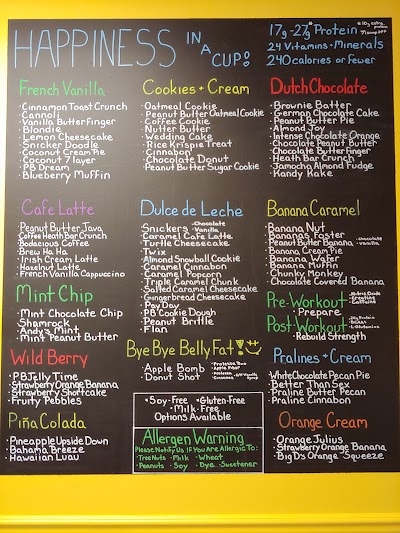 HAPPINESS IN A CUP!
17g-27g* Protein
24 Vitamins + Minerals
240 calories or fewer
French Vanilla
• Cinnamon Toast Crunch
• Cannoli
• Vanilla Butterfinger
• Blondie
• Lemon Cheesecake
• Snicker Doodle
• Coconut Cream Pie
• Coconut 7 layer
• PB Dream
• Blueberry Muffin
Cookies + Cream
• Oatmeal Cookie
• Peanut Butter Oatmeal Cookie
• Coffee Cookie
• Nutter Butter
• Wedding Cake
• Rice Krispie Treat
• Cinnabon
• Chocolate Donut
• Peanut Butter Sugar Cookie
Dutch Chocolate
• Brownie Batter
• German Chocolate Cake
• Peanut Butter Pie
• Almond Joy
• Intense Chocolate Orange
• Chocolate Peanut Butter
• Chocolate Butterfinger
• Heath Bar Crunch
• Jamocha Almond Fudge
• Kandy Kake
Cafe Latte
• Peanut Butter Java
• Coffee Heath Bar Crunch
• Bodacious Coffee
• Brew Ha Ha
• Irish Cream Latte
• Hazelnut Latte
• French Vanilla Cappuccino
Mint Chip
• Mint Chocolate Chip
• Shamrock
• Andy's Mint
• Mint Peanut Butter
Wild Berry
• PB Jelly Time
• Strawberry Orange Banana
• Strawberry Shortcake
• Fruity Pebbles
Piña Colada
• Pineapple Upside Down
• Bahama Breeze
• Hawaiian Luau
Dulce de Leche
• Snickers • Chocolate • Vanilla
• Caramel Cafe Latte
• Turtle Cheesecake
• Twix
• Almond Snowball Cookie
• Caramel Cinnabon
• Caramel Popcorn
• Triple Caramel Chunk
• Salted Caramel Cheesecake
• Gingerbread Cheesecake
• Pay Day
• PB Cookie Dough
• Peanut Brittle
• Flan
Bye Bye Belly Fat!
• Apple Bomb
• Donut Shot
• Soy-Free • Gluten-Free
• Milk-Free
Options Available
Allergen Warning
Please Notify Us If You Are Allergic To:
• Tree Nuts • Milk • Wheat
• Peanuts • Soy • Dye • Sweetener
Banana Caramel
• Banana Nut
• Banana Foster
• Peanut Butter Banana • Chocolate • Vanilla
• Banana Cream Pie
• Banana Wafer
• Banana Muffin
• Chunky Monkey
• Chocolate Covered Banana
Pre-Workout • Nitric Oxide • Creatine • Caffeine
• Prepare
Post-Workout
• Rebuild Strength
Pralines + Cream
• White Chocolate Pecan Pie
• Better Than Sex
• Praline Butter Pecan
• Praline Cinnabon
Orange Cream
• Orange Julius
• Strawberry Orange Banana
• Big D's Orange Squeeze